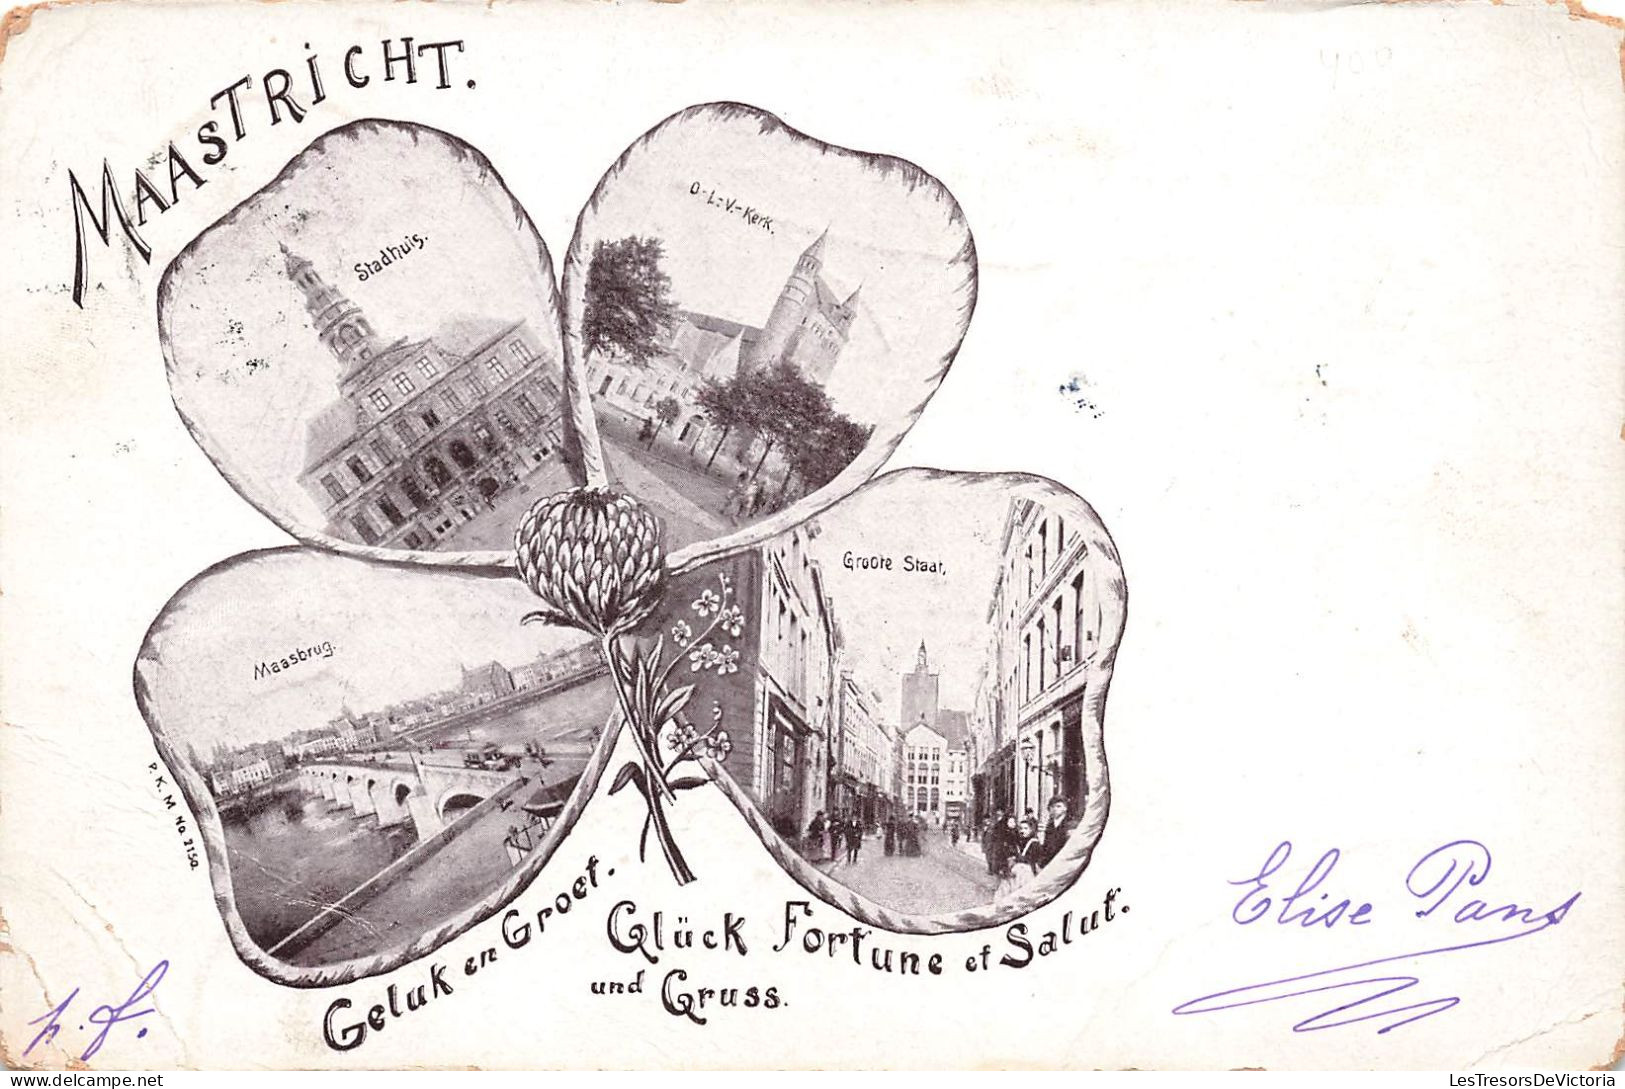 MAASTRICHT.
400
Stadhuis.
O.-L.-V.-Kerk.
Maasbrug.
Groote Staat.
P. K. M No. 2150.
Geluk en Groet.
Glück und Gruss.
Fortune et Salut.
p. f.
Elise Pans
LesTresorsDeVictoria